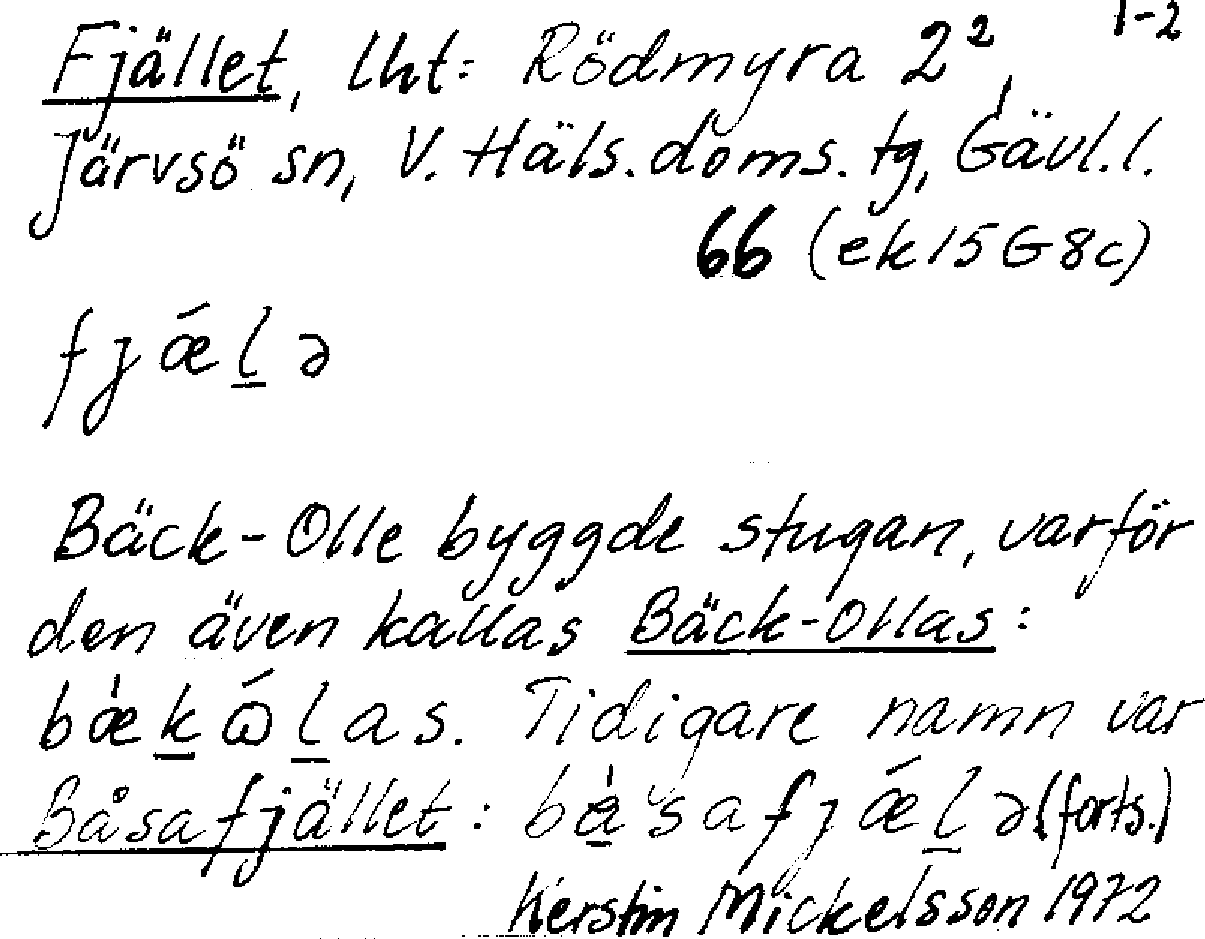 1-2
Fjället, lht: Rödmyra 2²,
Järvsö sn, V. Häls. doms. tg, Gävl. l.
66 (ek 15 G 8c)
fjǽl̲ə
Bäck-Olle byggde stugan, varför
den även kallas Bäck-Ollas:
bæ̀k̲ώl̲as. Tidigare namn var
Båsafjället: bå̲̀safjǽl̲ə (forts.)
Kerstin Mickelsson 1972